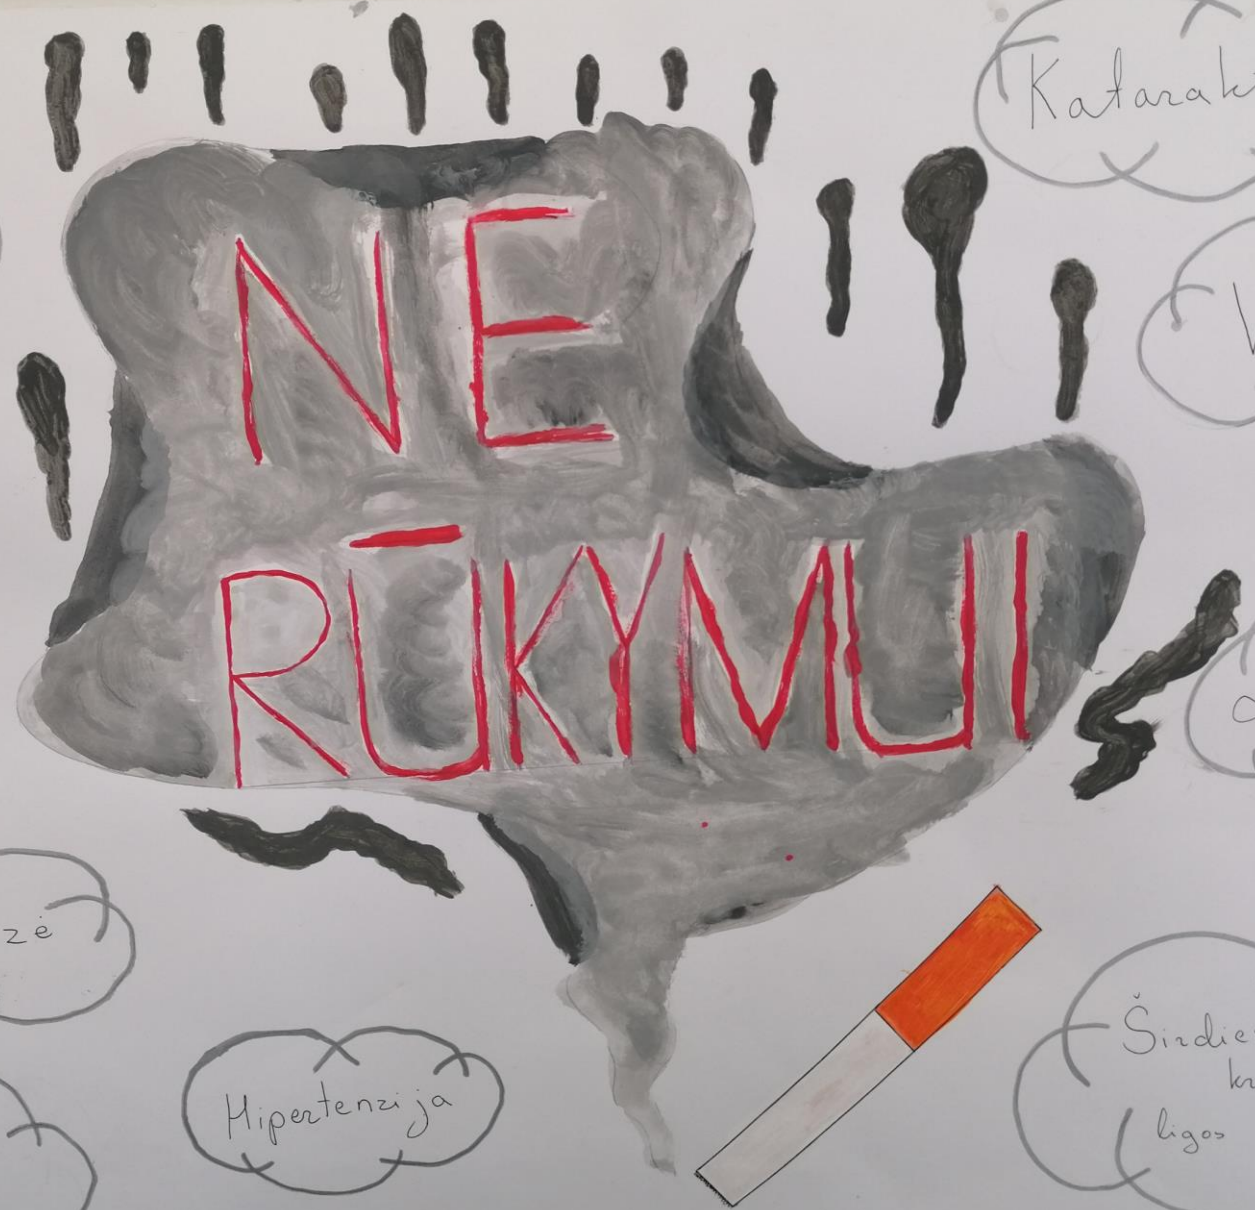 Katarak
NE
RŪKYMUI
zė
Hipertenzija
Širdie
kr
ligos